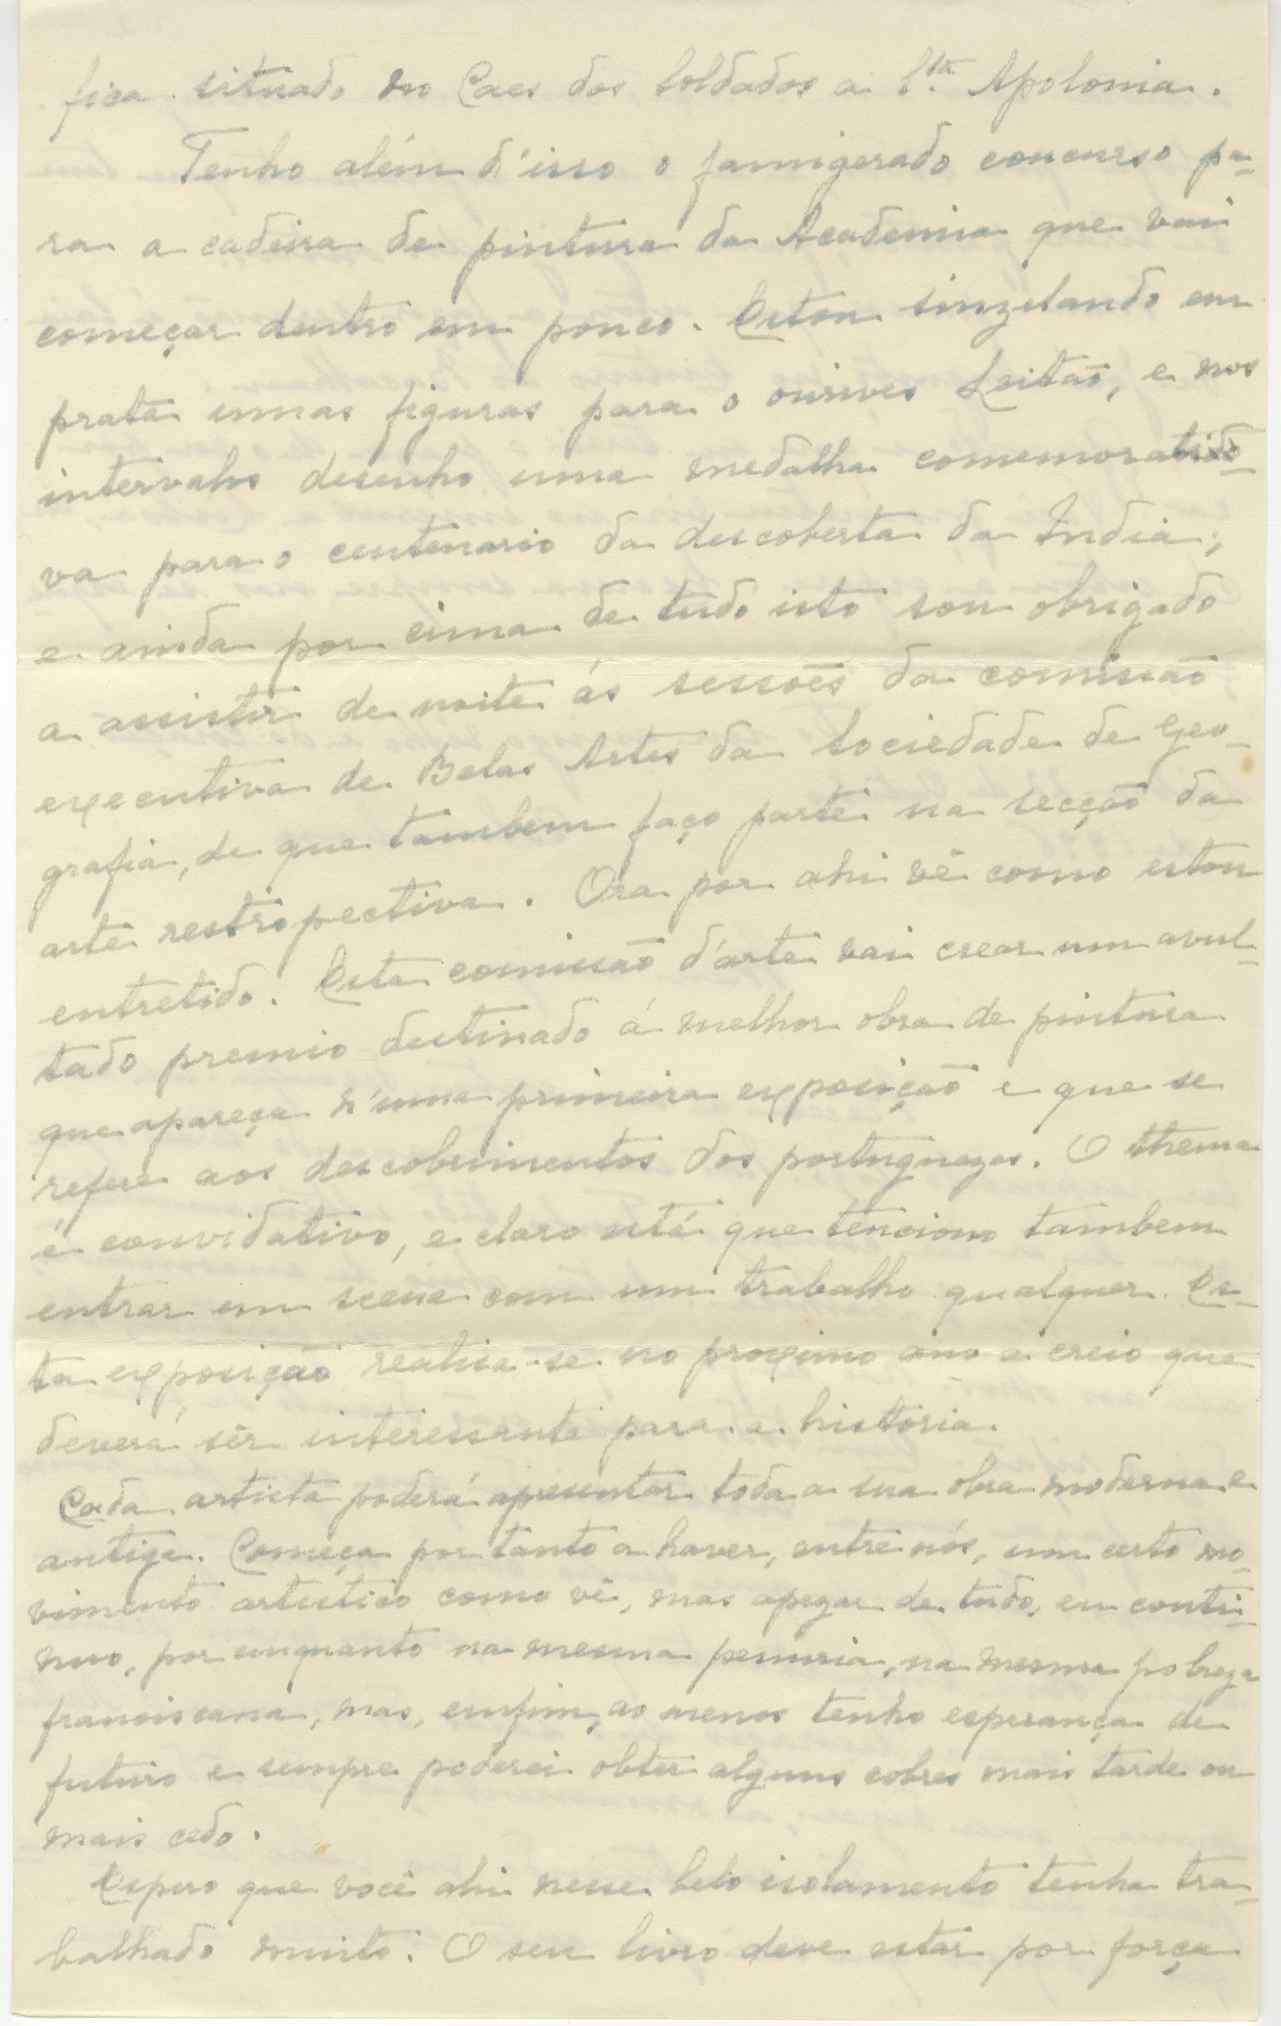 fica situado no Caes dos Soldados a S.ta Apolonia.
Tenho além d'isso o famigerado concurso pa-
ra a cadeira de pintura da Academia que vai
começar dentro em pouco. Estou sinzelando em
prata umas figuras para o ourives Leitão, e nos
intervalos desenho uma medalha comemorati-
va para o centenario da descoberta da India;
e ainda por cima de tudo isto sou obrigado
a assistir de noite ás sessões da comissão
executiva de Belas Artes da Sociedade de Geo-
grafia, de que tambem faço parte na secção da
arte restropectiva. Ora por ahi vê como estou
entretido. Esta comissão d'arte vai crear um avul-
tado premio destinado á melhor obra de pintura
que apareça n'uma primeira exposição e que se
refere aos descobrimentos dos portuguezes. O thema
é convidativo, e claro está que tenciono tambem
entrar em scena com um trabalho qualquer. Es-
ta exposição realisa-se no proximo ano e creio que
deverá sêr interessante para a historia.
Cada artista poderá apresentar toda a sua obra moderna e
antiga. Começa por tanto a haver, entre nós, um certo mo-
vimento artistico como vê, mas apezar de tudo, eu conti-
nuo, por enquanto na mesma penuria, na mesma pobreza
franciscana, mas, emfim, ao menos tenho esperança de
futuro e sempre poderei obter alguns cobres mais tarde ou
mais cedo.
Espero que você ahi nesse belo isolamento tenha tra-
balhado muito. O seu livro deve estar por força